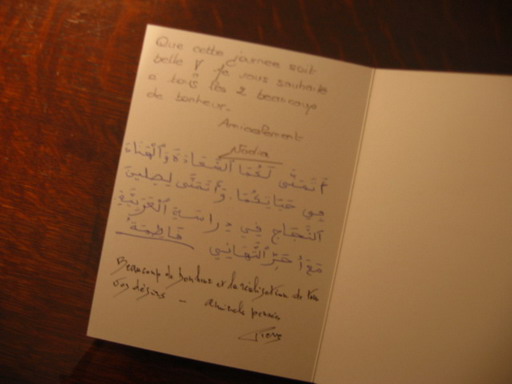 Que cette journée soit
belle & je vous souhaite
a tous les 2 beaucoup
de bonheur.
Amicalement
Nadia
أتمنى لكما السعادة والهناء
في حياتكما. وأتمنى ليصلين
النجاح في دراسة العربية
مع أحر التهاني فاطمة
Beaucoup de bonheur et la réalisation de tous
vos désirs - Amicale pensée